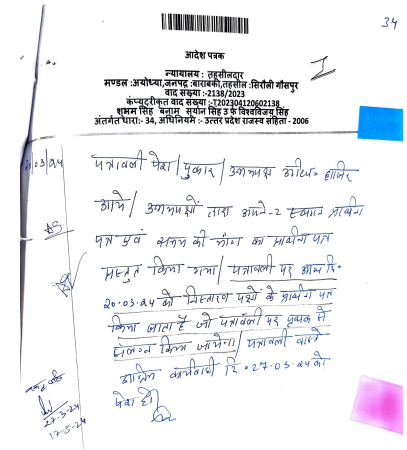 34
आदेश पत्रक
न्यायालय : तहसीलदार
मण्डल :अयोध्या,जनपद :बाराबंकी,तहसील :सिरौली गौसपुर
वाद सख्या:-2138/2023
कंप्यूटरीकृत वाद सख्या:-T202304120602138
शुभम सिंह बनाम सूर्यान सिंह उ र्फ विश्वविजय सिंह
अंतर्गत धारा:- 34, अधिनियम :- उत्तर प्रदेश राजस्व संहिता - 2006
20/03/24
पत्रावली पेश/ पुकार/ उभयपक्ष हाजिर
आये/ उभयपक्षों द्वारा अपने-2 स्थगन प्रार्थना
पत्र एवं की मांग का प्रार्थना पत्र
प्रस्तुत किया गया/ पत्रावली पर आज दि.
20.03.24 को निस्तारण पक्षों के प्रार्थना पत्र
किया जाता है जो पत्रावली पर पृथक से
संलग्न किया जायेगा/ पत्रावली वास्ते
अग्रिम कार्यवाही दि. 27.03.24 को
पेश हो।
27-3-24
17-5-24